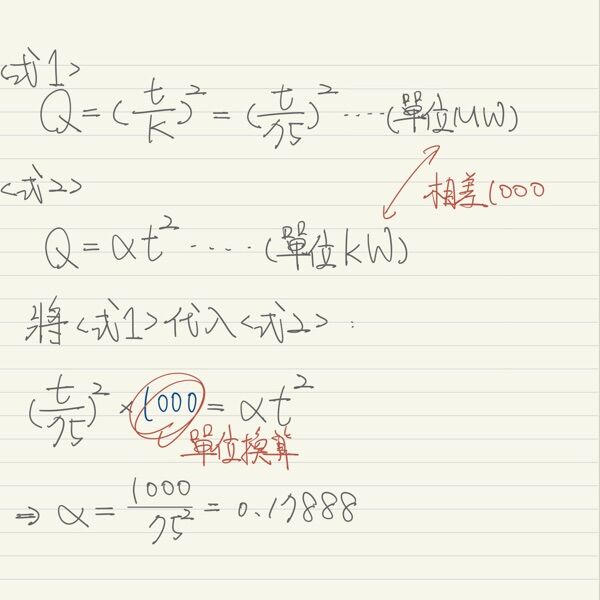 <式1>
Q = (t/K)² = (t/75)² ····(單位MW)
相差1000
<式2>
Q = αt² ···· (單位kW)
將<式1>代入<式2>:
(t/75)² × 1000 = αt²
單位換算
⇒ α = 1000/75² = 0.17888